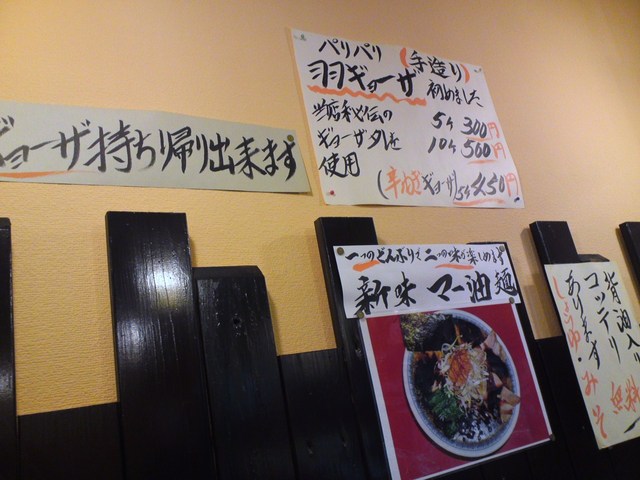 ギョーザ持ち帰り出来ます
パリパリ(手造り)
羽ギョーザ初めました
当店秘伝の
ギョーザタレを
使用
5ケ300円
10ケ500円
ギョーザ 5ケ450円
一つのどんぶりで二つの味が楽しめます
新味マー油麺
背油入
コッテリ
あります
しょうゆ・みそ
無料